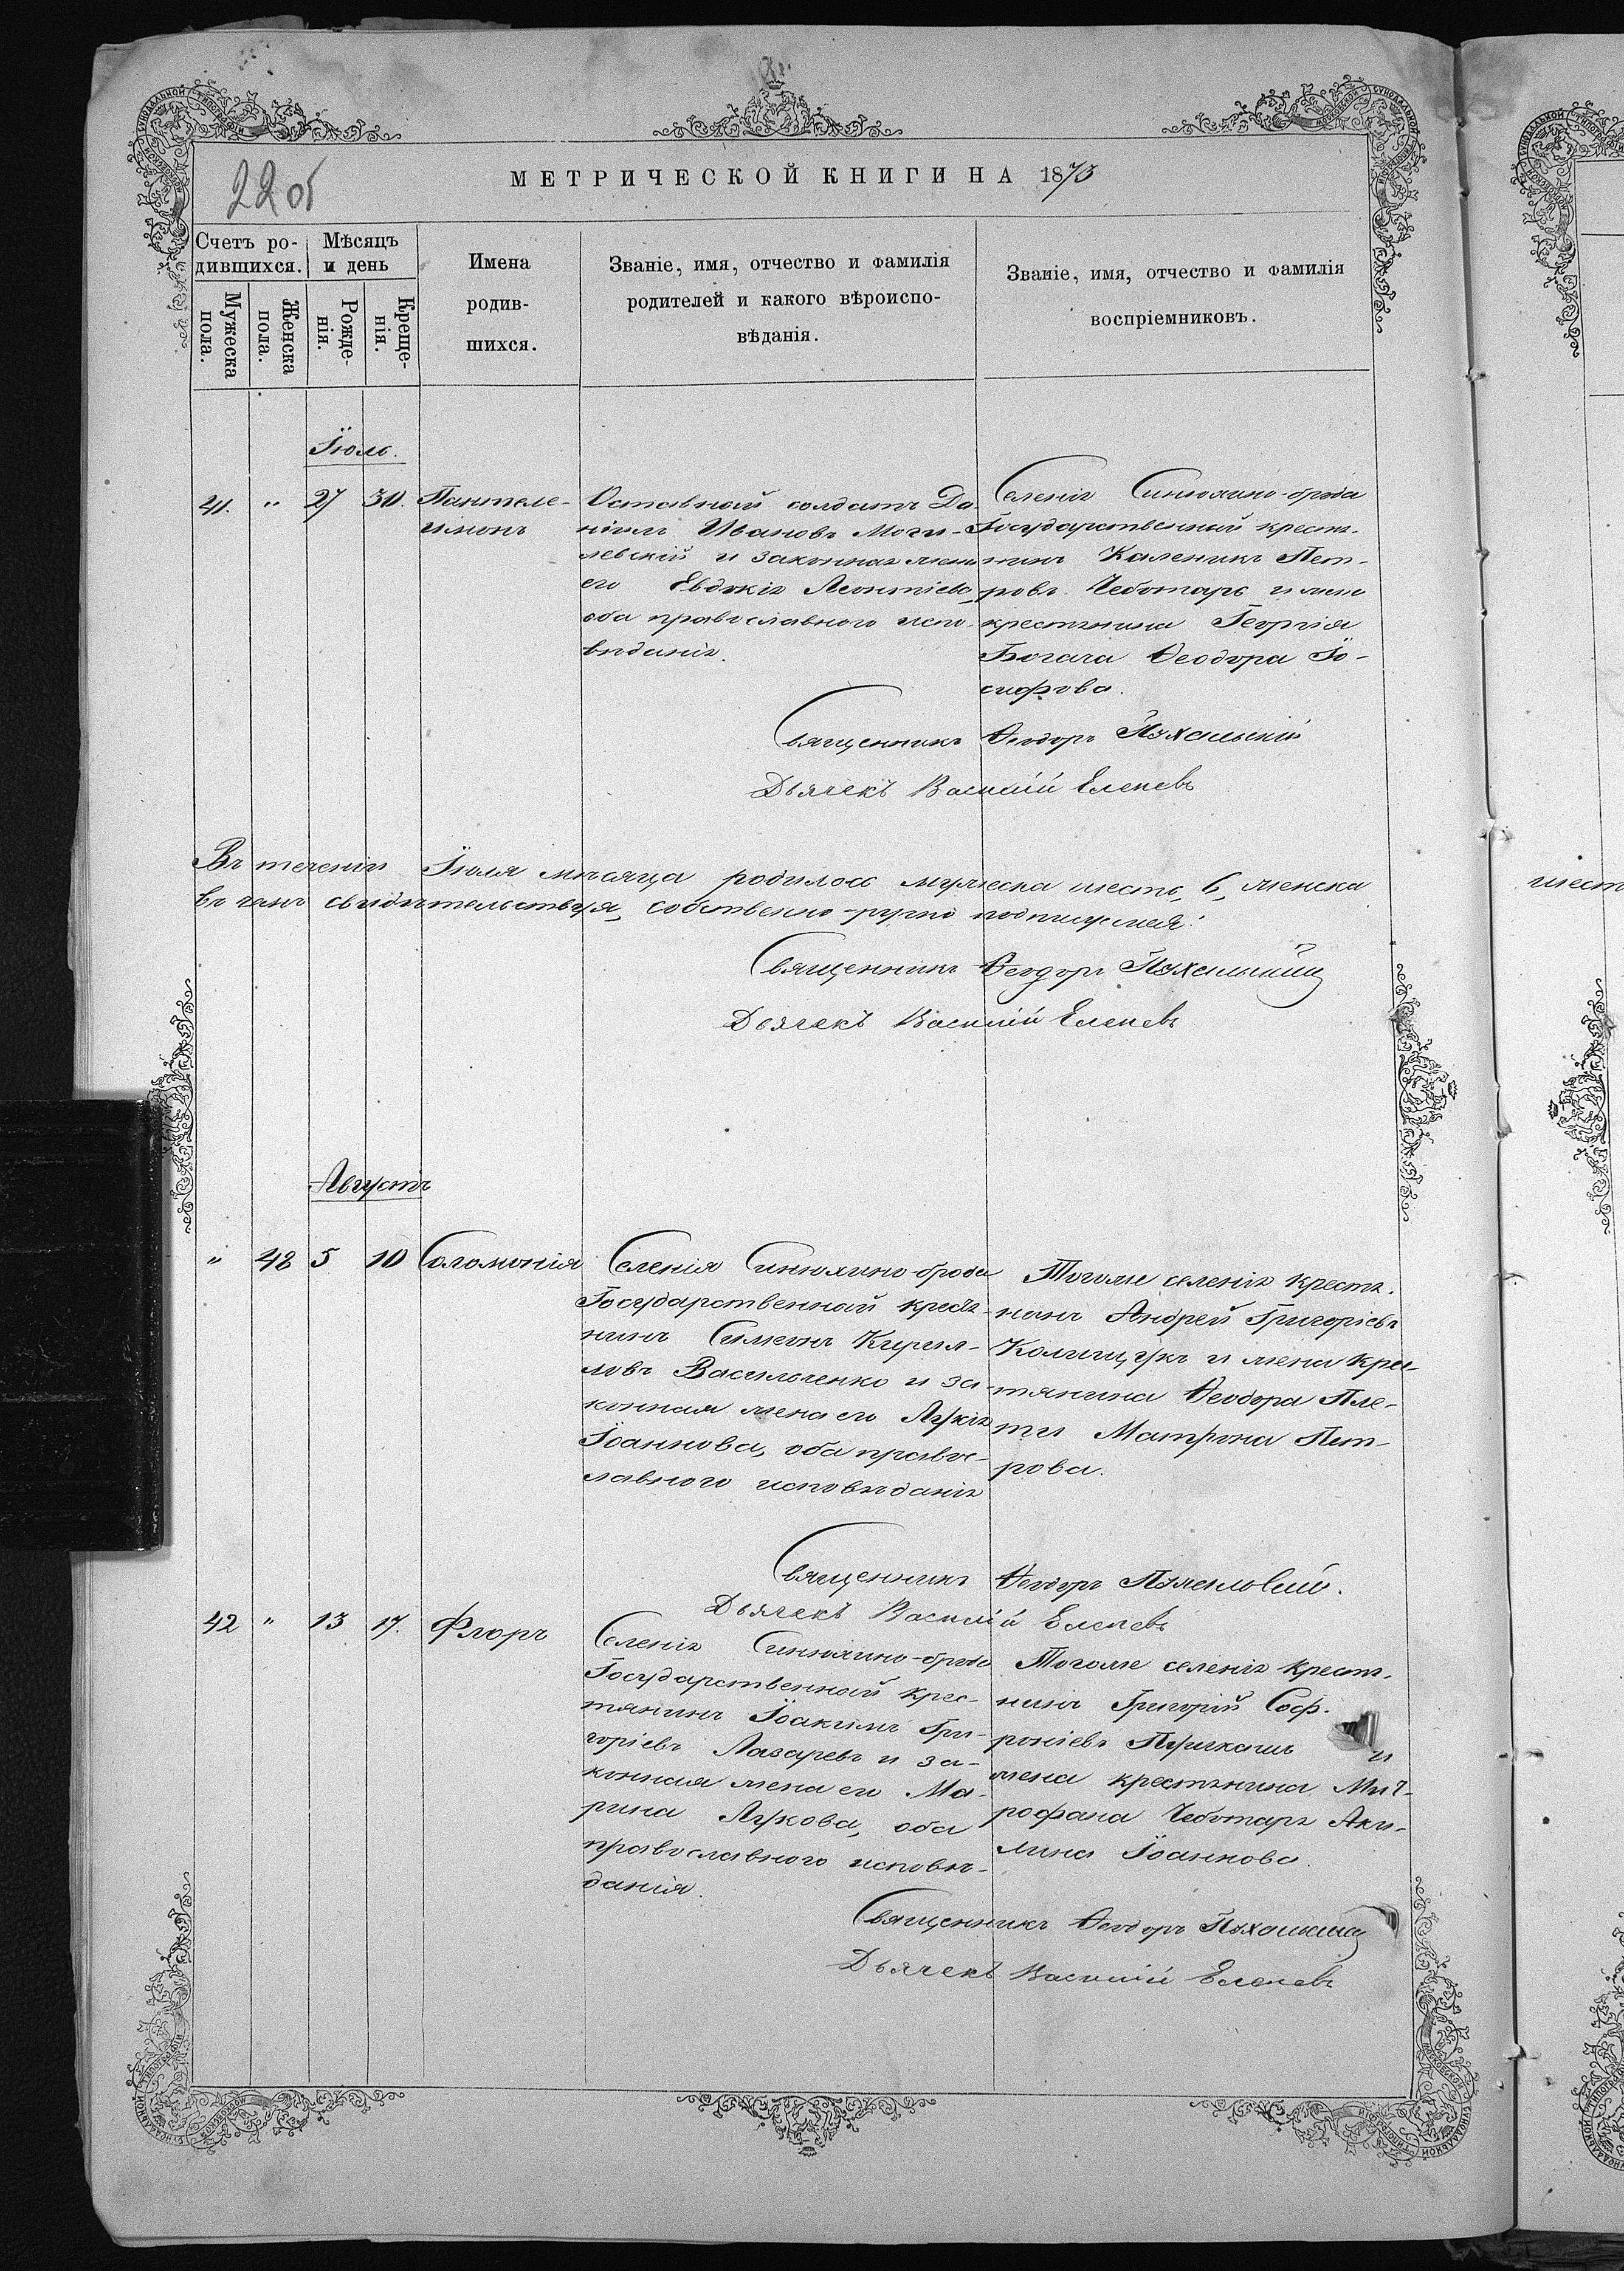 22 об
МЕТРИЧЕСКОЙ КНИГИ НА 1873
Счетъ ро-
дившихся.
Мѣсяцъ
и день
Мужеска
пола.
Женска
пола.
Рожде-
нія.
Креще-
нія.
Имена
родив-
шихся.
Званіе, имя, отчество и фамилія
родителей и какого вѣроиспо-
вѣданія.
Званіе, имя, отчество и фамилія
воспріемниковъ.
Іюль.
41. " 27 30. Пантеле-
имонъ
Отставный солдатъ Да-
ніилъ Ивановъ Моги-
левскій и законная жена
его Евдокія Леонтіева,
оба православнаго испо-
вѣданія.
Селенія Синюхино-брода
Государственный крестя-
нинъ Каленикъ Пет-
ровъ Чеботарь и жена
крестянина Георгія
Богача Ѳеодора Іо-
сифова.
Священникъ Ѳеодоръ
Дьячекъ Василій Еленевъ
Въ теченіи Іюля мѣсяца родилось мужеска шесть, 6, женска
въ чемъ свидѣтельствуя, собственно-ручно подписуемся:
Священникъ Ѳеодоръ
Дьячекъ Василій Еленевъ
шест
Августъ
" 48 5 10 Соломонія
Селенія Синюхино-брода
Государственный крестя-
нинъ Симеонъ Кирил-
ловъ Васильченко и за-
конная жена его Лукія
Іоаннова, оба правос-
лавного исповѣданія
Тогоже селенія крестя-
нинъ Андрей Григоріевъ
Колищукъ и жена крес-
тянина Ѳеодора Пле-
ты Матрона Пет-
рова.
Священникъ Ѳеодоръ
Дьячекъ Василій Еленевъ
42 " 13 17. Флоръ
Селенія Синюхино-брода
Государственный крес-
тянинъ Іоакимъ Гри-
горіевъ Лазаревъ и за-
конная жена его Ма-
рина Лукова, оба
православного исповѣ-
данія.
Тогоже селенія крестя-
нинъ Григорій Соф-
роніевъ и
жена крестянина Мит-
рофана Чеботаря Аки-
лина Іоаннова.
Священникъ Ѳеодоръ
Дьячекъ Василій Еленевъ